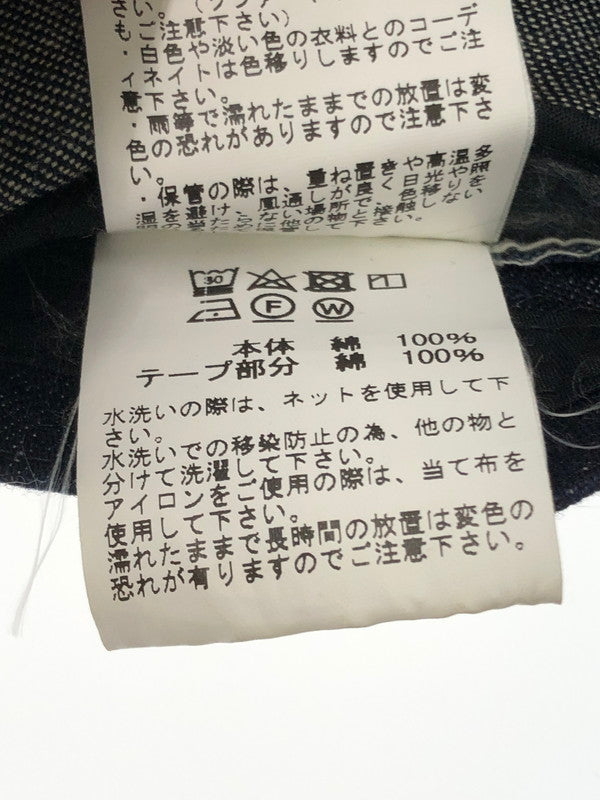 い。
さ注意下さい）
も色や淡い色の衣料とのコーデ
・ご白ネイトは色移りしますのでご注
ィ意下さい。
・雨等で濡れたままでの放置は変
色の恐れがありますので注意下さ
い。
・保管の際は、重ね置きや高温多
30
F
W
本体 綿 100%
テープ部分 綿 100%
水洗いの際は、ネットを使用して下
さい。
水洗いでの移染防止の為、他の物と
分けて洗濯して下さい。
アイロンをご使用の際は、当て布を
使用して下さい。
濡れたままで長時間の放置は変色の
恐れが有りますのでご注意下さい。